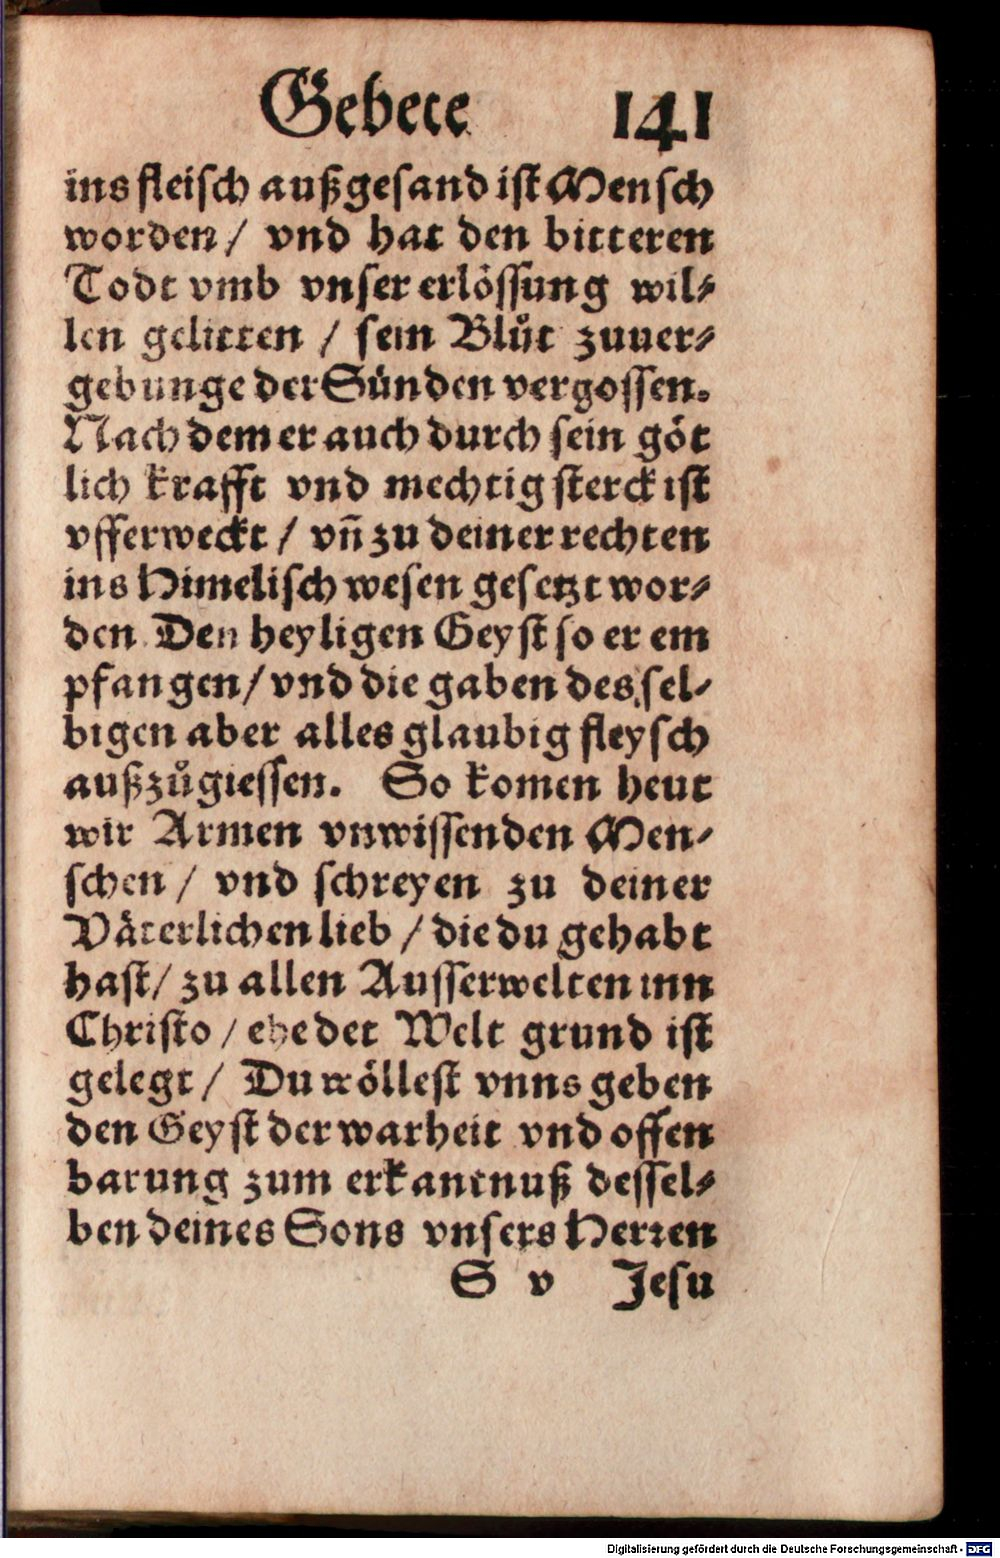 Gebete 141
ins fleisch außgesand ist Mensch
worden / vnd hat den bitteren
Todt vmb vnser erlössung wil⸗
len gelitten / sein Blůt zuuer⸗
gebunge der Sünden vergossen.
Nach dem er auch durch sein göt
lich krafft vnd mechtig sterck ist
vfferweckt / vñ zu deiner rechten
ins Himelisch wesen gesetzt wor⸗
den Den heyligen Geyst so er em
pfangen / vnd die gaben des sel⸗
bigen aber alles glaubig fleysch
außzůgiessen. So komen heut
wir Armen vnwissenden Men⸗
schen / vnd schreyen zu deiner
Väterlichen lieb / die du gehabt
hast / zu allen Ausserwelten inn
Christo / ehe det Welt grund ist
gelegt / Du wöllest vnns geben
den Geyst der warheit vnd offen
barung zum erkantnuß dessel⸗
ben deines Sons vnsers Herꝛen
S v Jesu
Digitalisierung gefördert durch die Deutsche Forschungsgemeinschaft - DFG